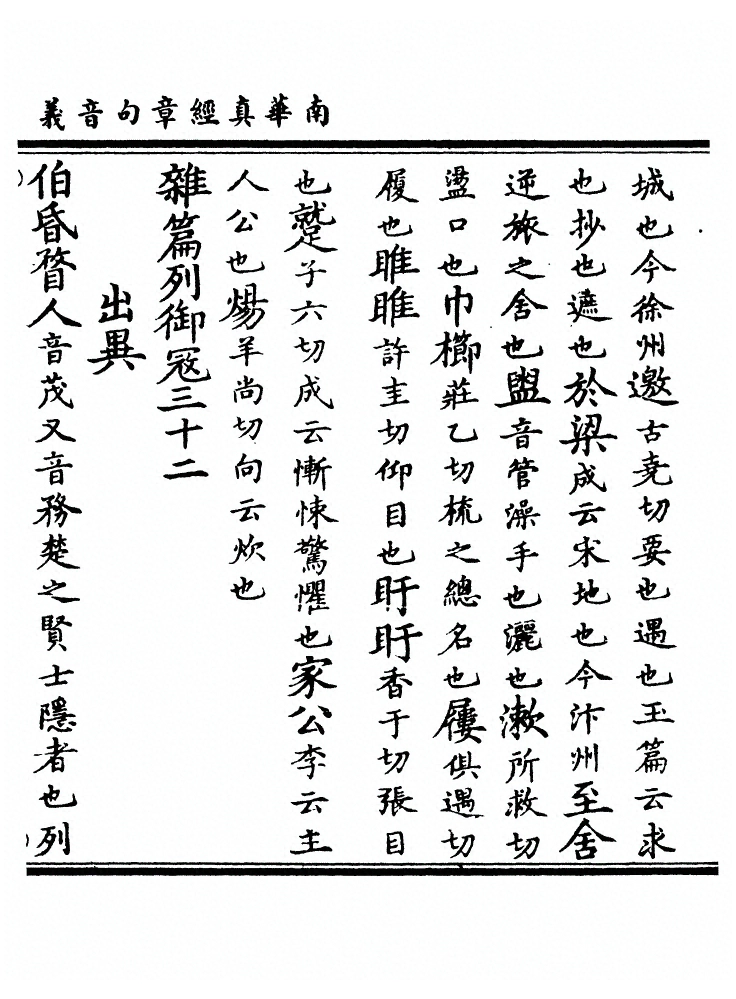 南華真經章句音義
城也今徐州邀古堯切要也遇也玉篇云求
也抄也遮也於梁成云宋地也今汴州至舍
逆旅之舍也盥音管澡手也灑也漱所救切
盪口也巾櫛莊乙切梳之總名也屨俱遇切
履也睢睢許圭切仰目也盱盱香于切張目
也蹵子六切成云慚悚驚懼也家公李云主
人公也煬羊尚切向云炊也
雜篇列御冦三十二
出異
伯昏瞀人音茂又音務楚之賢士隱者也列